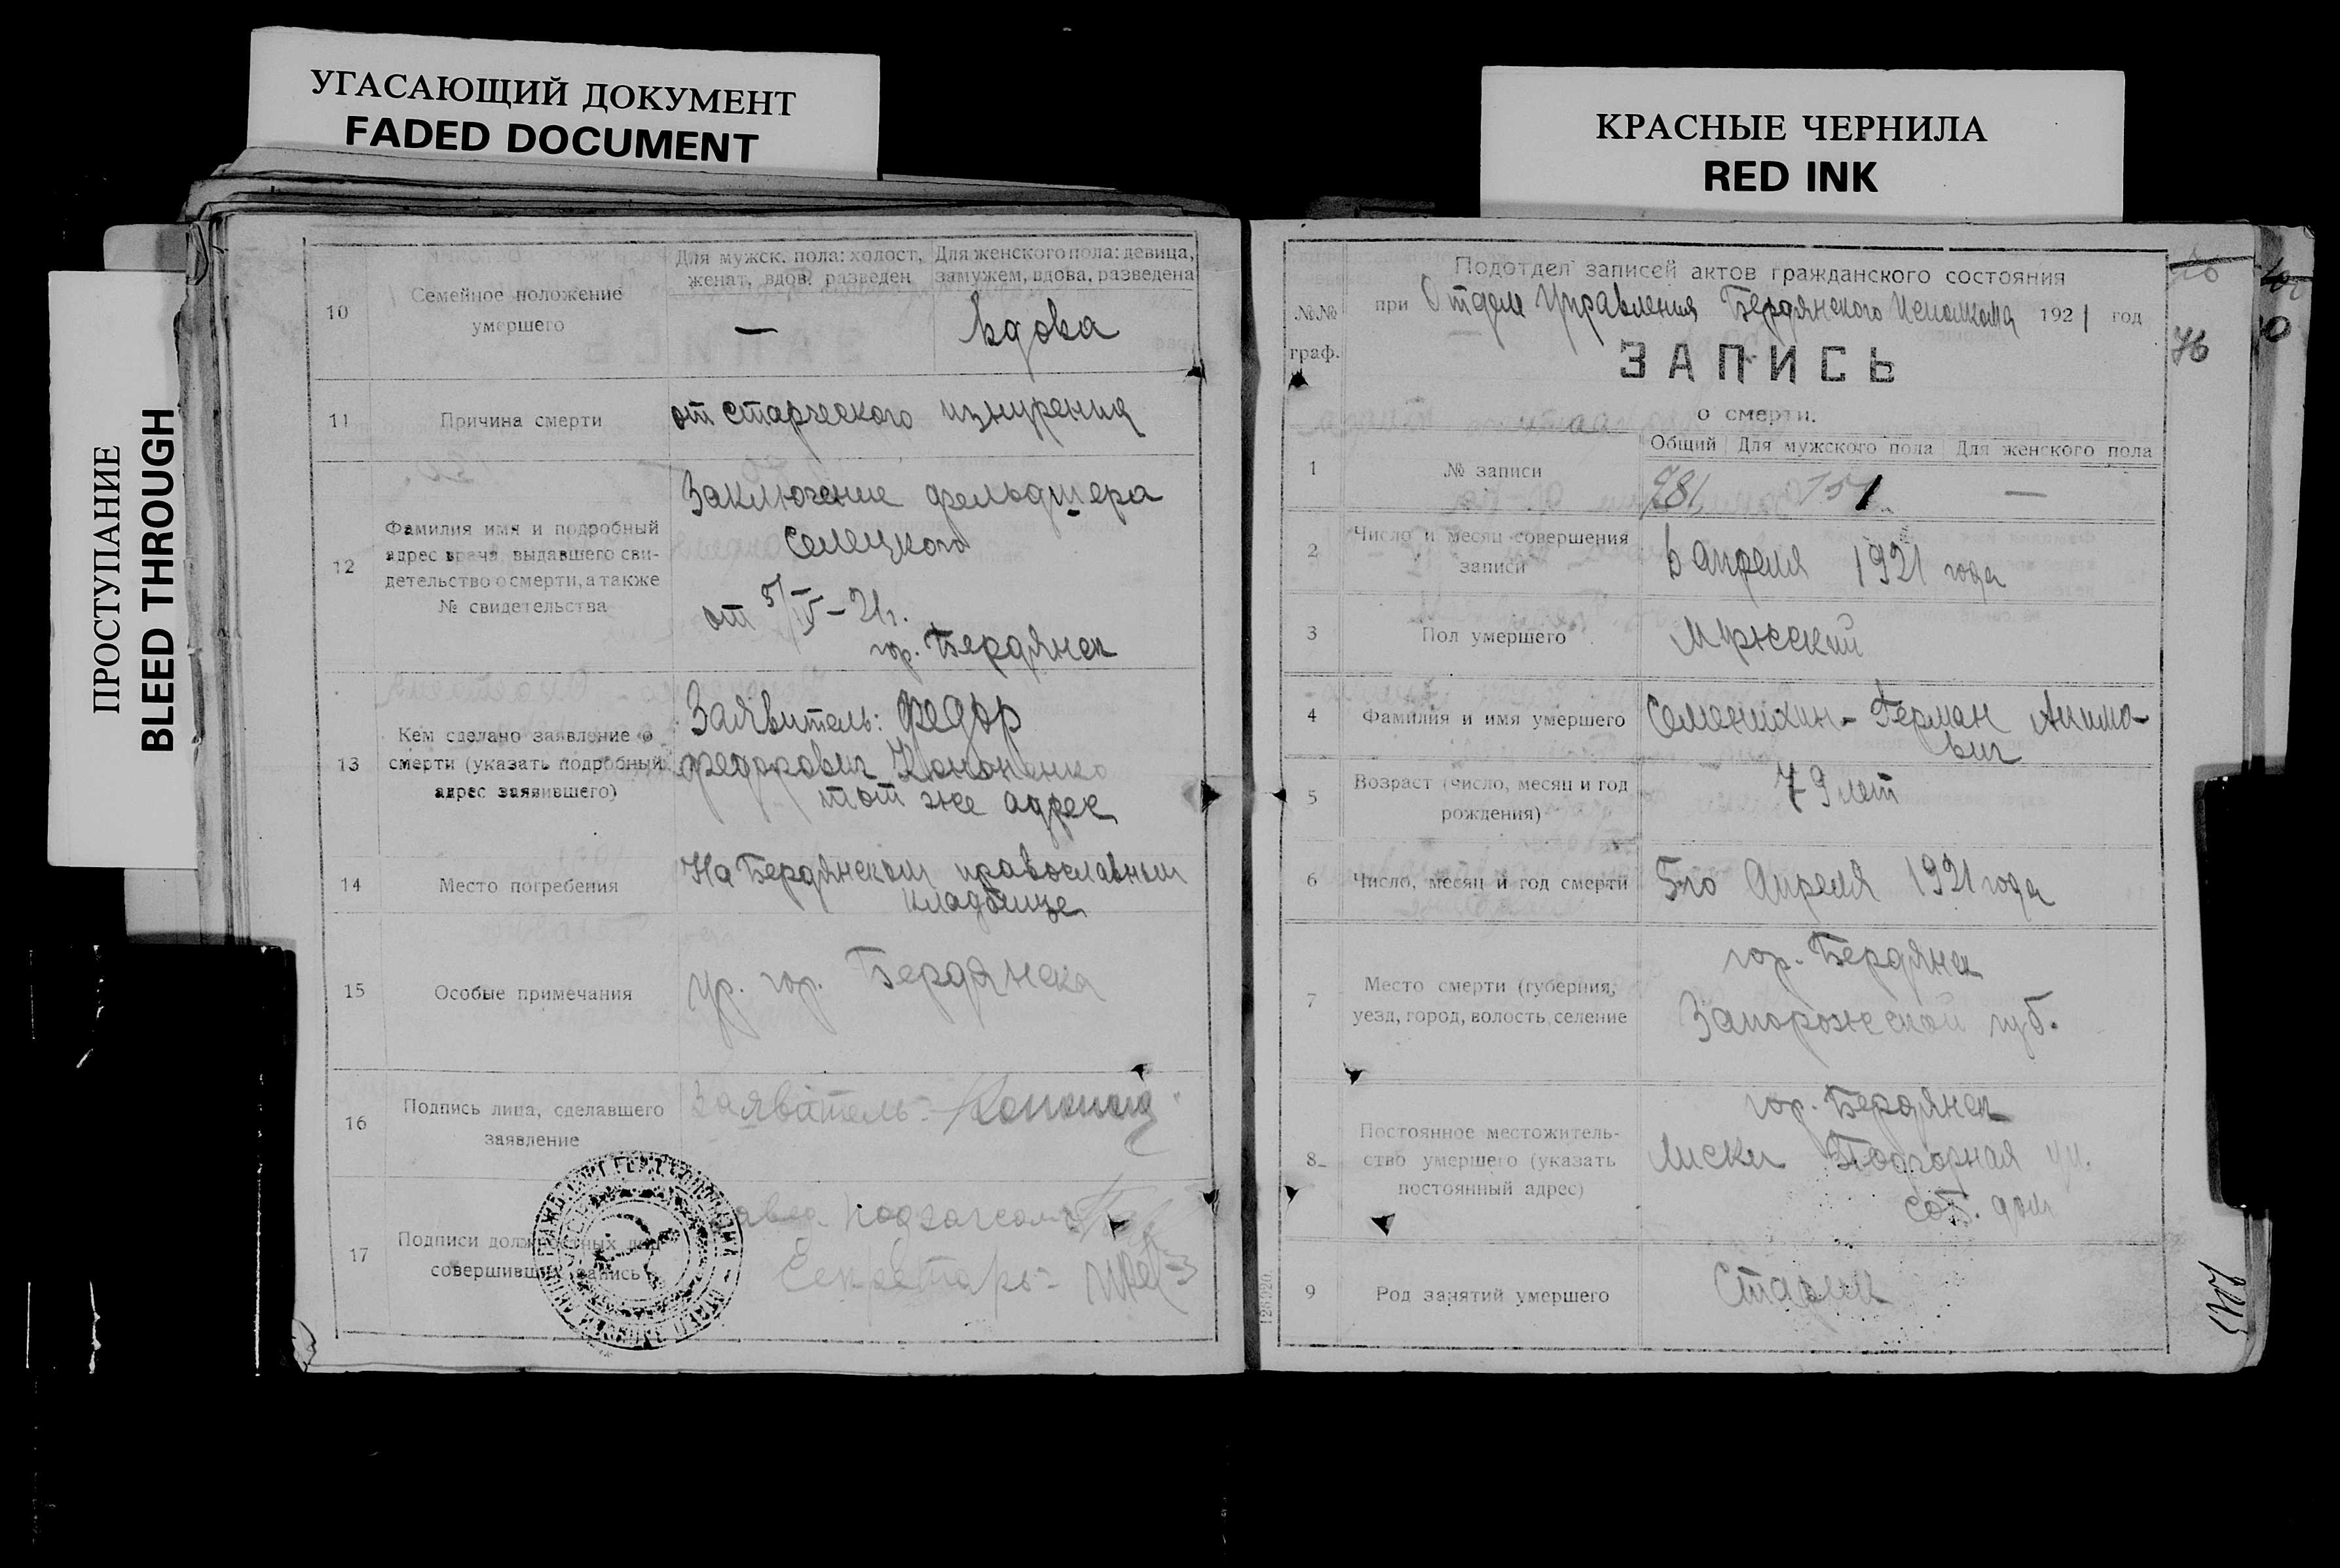 УГАСАЮЩИЙ ДОКУМЕНТ
FADED DOCUMENT
КРАСНЫЕ ЧЕРНИЛА
RED INK
ПРОСТУПАНИЕ
BLEED THROUGH
10
Семейное положение
умершего
Для мужск. пола: холост,
женат, вдов. разведен
Для женского пола: девица,
замужем, вдова, разведена
—
Вдова
11
Причина смерти
от старческого изнурения
12
Фамилия имя и подробный
адрес врача, выдавшего сви-
детельство о смерти, а также
№ свидетельства
Заключение фельдшера
Селецкого
от 5/IV-21г.
гор. Бердянск
13
Кем сделано заявление о
смерти (указать подробный
адрес заявившего)
Заявитель: Федор
Федорович Кононенко
тот же адрес
14
Место погребения
На Бердянском православном
кладбище
15
Особые примечания
ур. гор. Бердянска
16
Подпись лица, сделавшего
заявление
Заявитель:
17
Подписи должностных лиц
совершивших запись
Секретарь:
Подотдел записей актов гражданского состояния
№№
граф.
при Отделе Управления Бердянского Исполкома 1921 год
76
ЗАПИСЬ
о смерти.
Общий
Для мужского пола
Для женского пола
1
№ записи
281
151
—
2
Число и месяц совершения
записи
6 апреля 1921 года
3
Пол умершего
Мужской
4
Фамилия и имя умершего
Семенихин - Герман Акимо-
вич
5
Возраст (число, месяц и год
рождения)
79 лет
6
Число, месяц и год смерти
5го Апреля 1921 года
7
Место смерти (губерния,
уезд, город, волость, селение
гор. Бердянск
Запорожской губ.
8
Постоянное местожитель-
ство умершего (указать
постоянный адрес)
гор. Бердянск
Лиски Подгорная ул.
соб. дом
9
Род занятий умершего
Старик